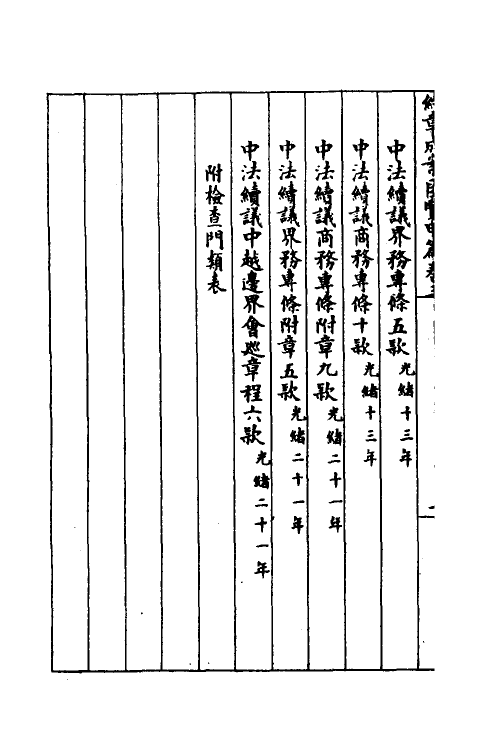 約章成案匯覽甲篇卷三
中法續議界務專條五款光緒十三年
中法續議商務專條十款光緒十三年
中法續議商務專條附章九款光緒二十一年
中法續議界務專條附章五款光緒二十一年
中法續議中越邊界會巡章程六款光緒二十一年
附檢查門類表